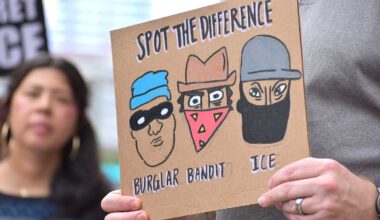 SPOT THE DIFFERENCE
BURGLAR BANDIT ICE
ICE